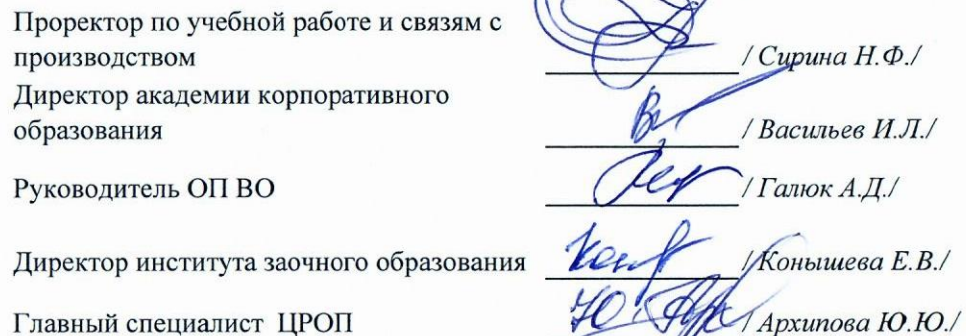 Проректор по учебной работе и связям с
производством / Сирина Н.Ф./
Директор академии корпоративного
образования / Васильев И.Л./
Руководитель ОП ВО / Галюк А.Д./
Директор института заочного образования / Конышева Е.В./
Главный специалист ЦРОП / Архипова Ю.Ю./